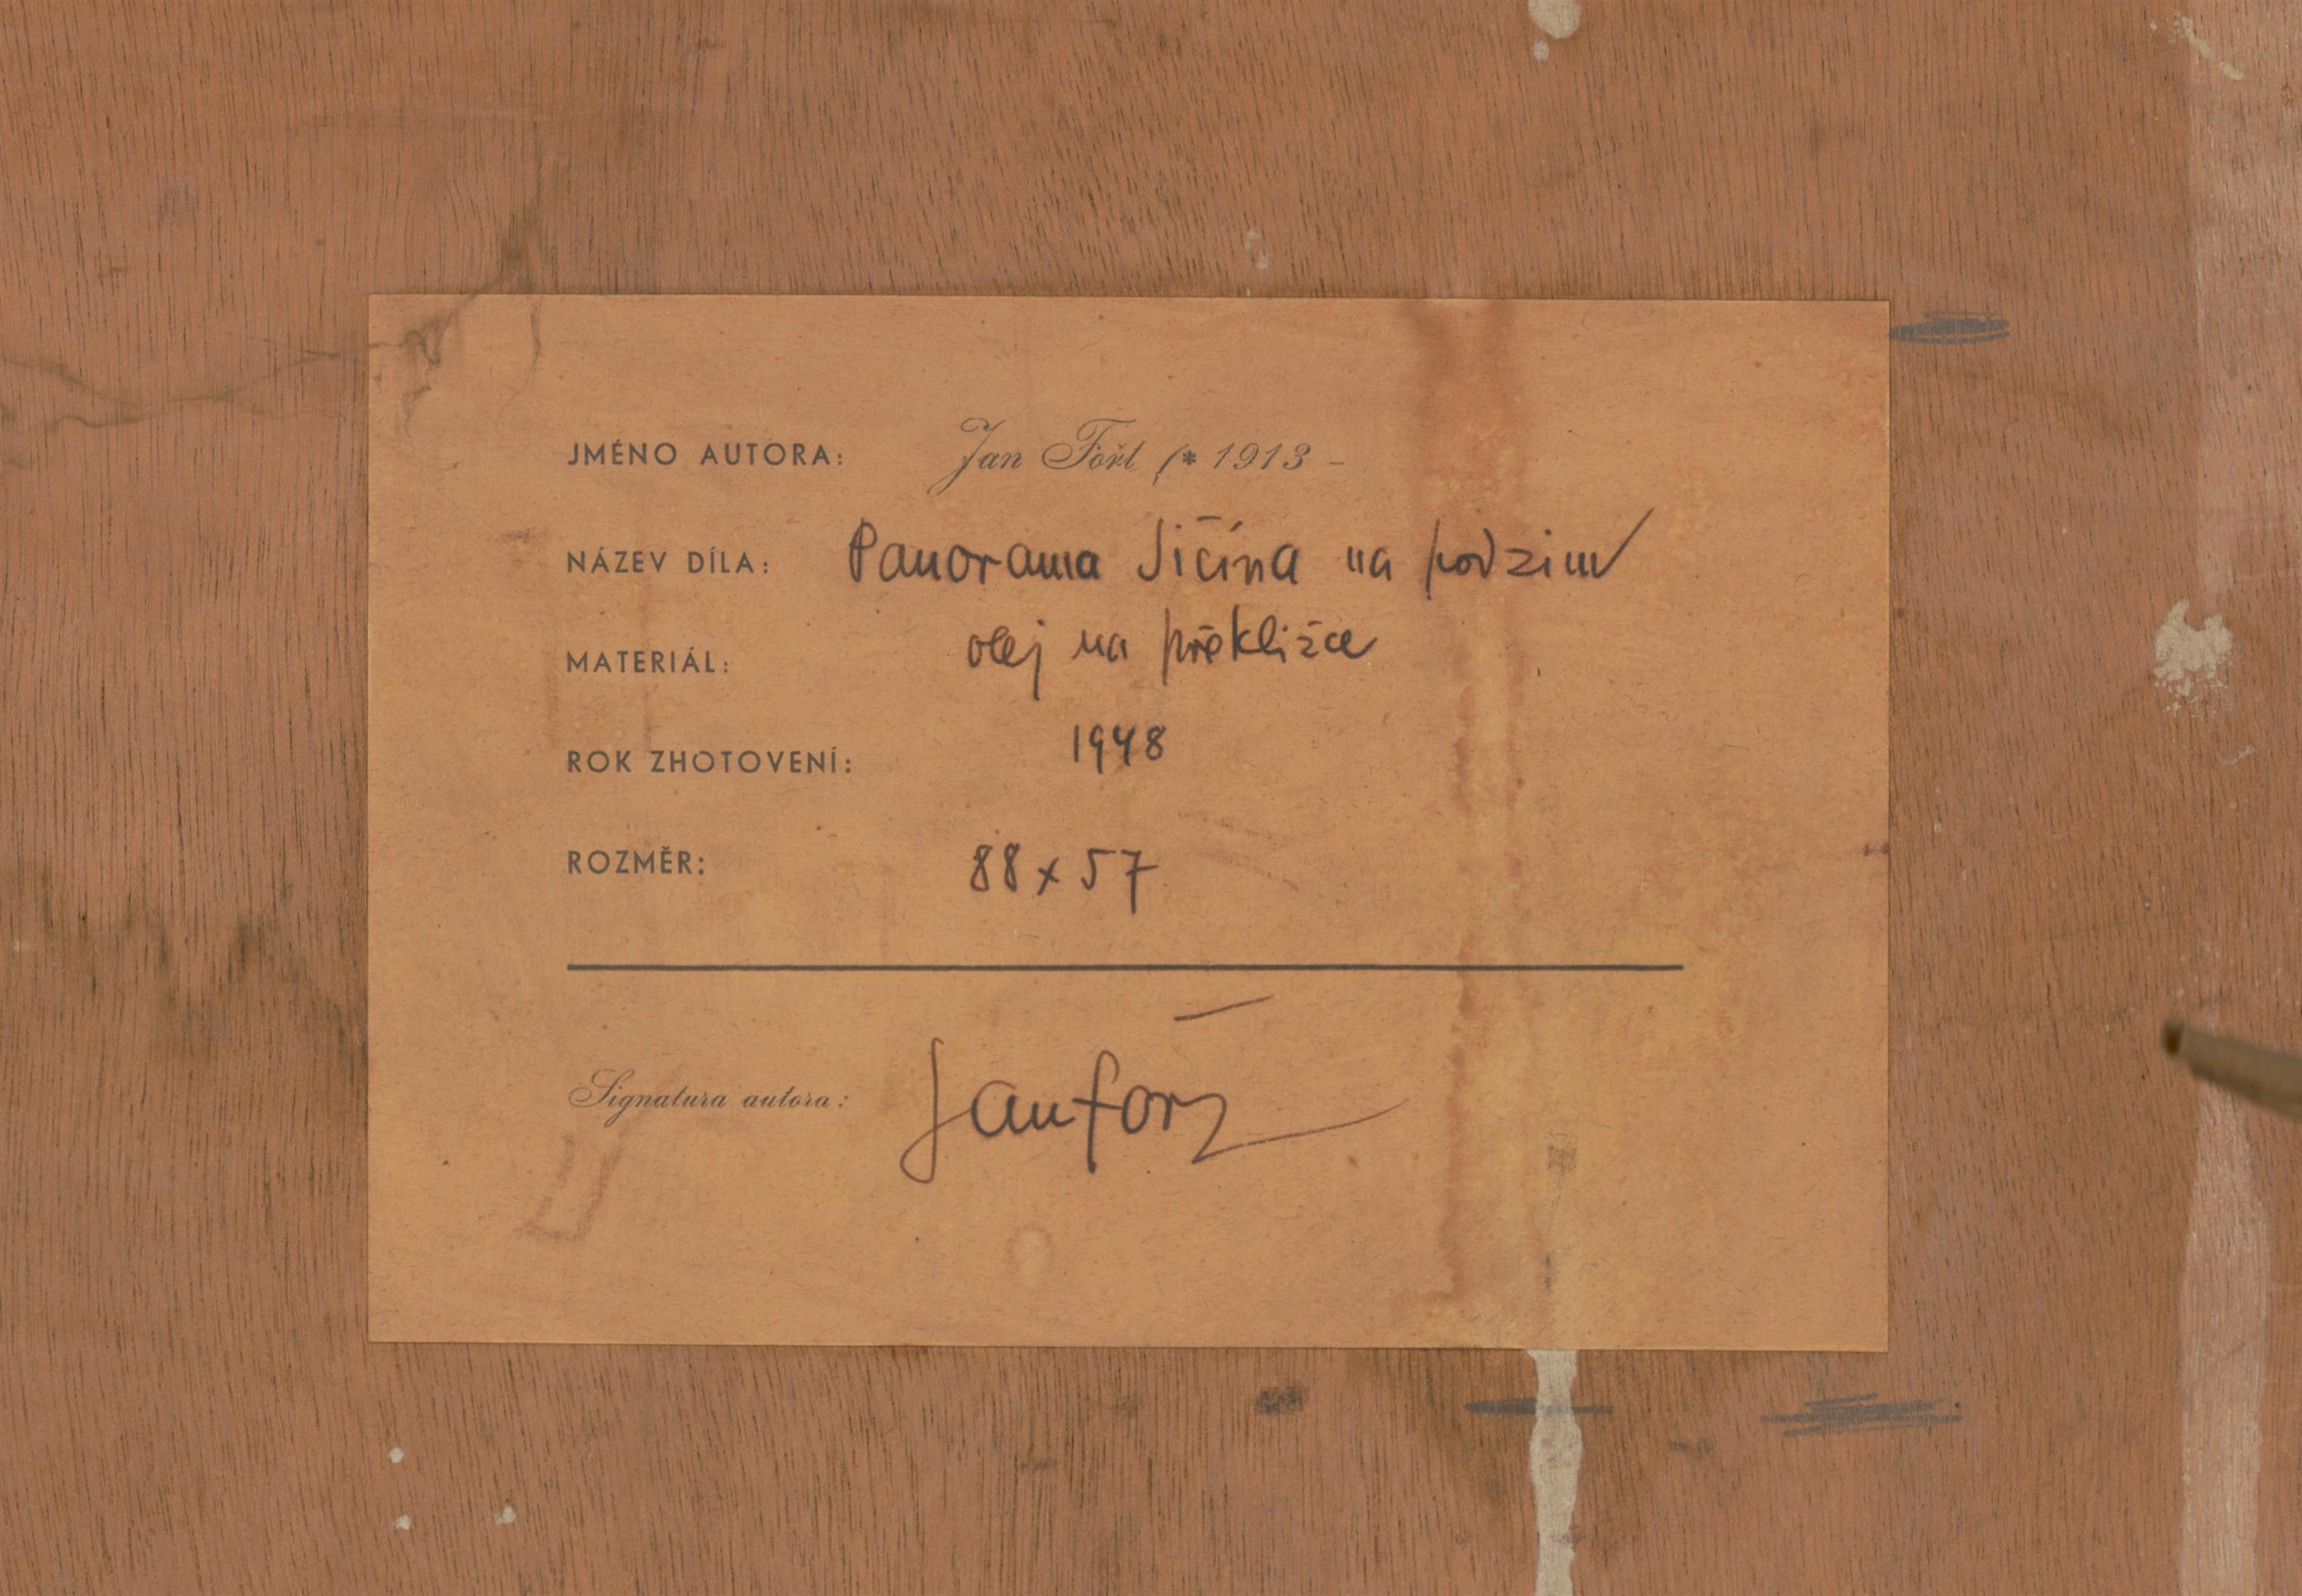 JMÉNO AUTORA: Jan Fořt (* 1913 -
NÁZEV DÍLA: Panorama Jičína na podzim
MATERIÁL: olej na překližce
ROK ZHOTOVENÍ: 1948
ROZMĚR: 88 x 57
Signatura autora: Jan Fořt